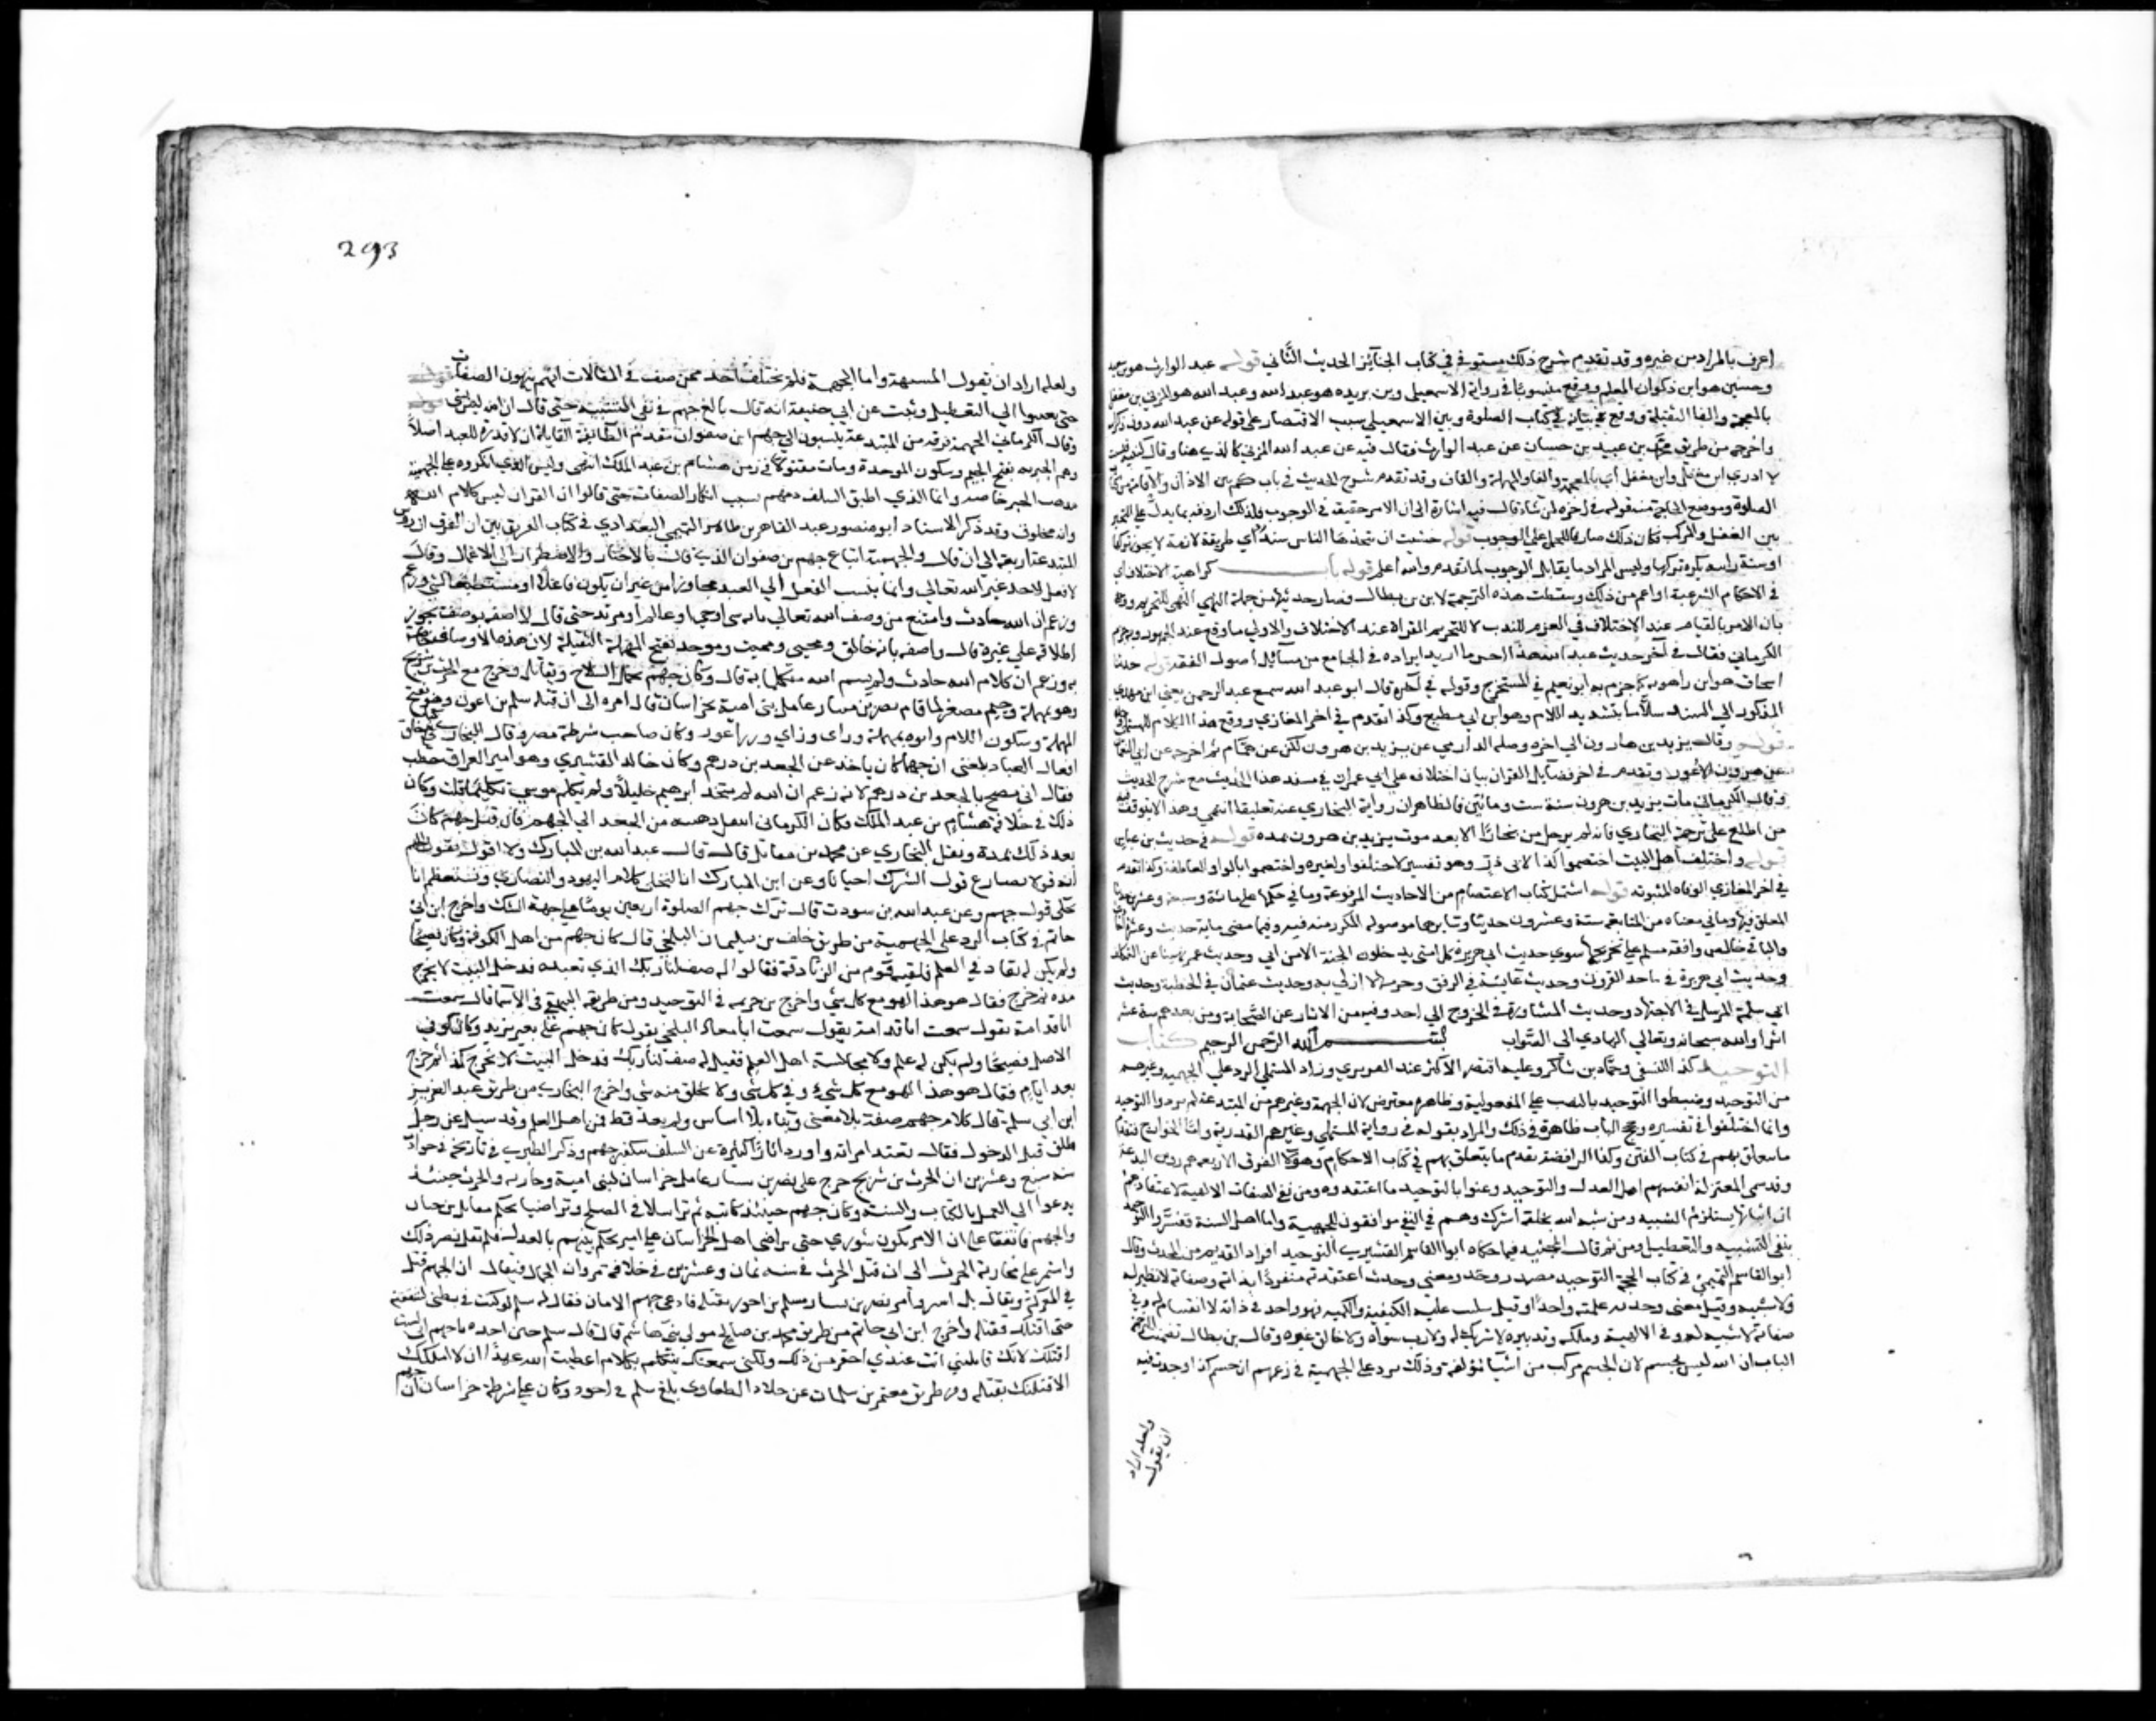 اعرف بالمراد من غيره وقد تقدم شرح ذلك مستوفى في كتاب الجنائز الحديث الثاني قوله عبد الوارث هو بن سعيد
وحسين هو ابن ذكوان المعلم ووقع منسوبا في رواية الاسمعيلي وبن بريده هو عبد الله وعبد الله هو المزني بن مغفل
بالمعجمة والفا الثقيلة ووقع كتاب الصلوة وبين الاسمعيلي سبب الاقتصار على قوله عن عبد الله دون ذكر
واخرجه من طريق محمد بن عبيد بن حسان عن عبد الوارث فقال فيه عن عبد الله المزني كالذي هنا وقال
لا ادري ابن مغفل وابن معقل اي بالمعجمة والفا والمهملة والقاف وقد تقدم شرح الحديث في باب كم بين الاذان والاقامة من
الصلوة وموضع الحاجة منه قوله في اخره لمن شاء قال فيه اشارة الى ان الامر حقيقة في الوجوب فلذلك اردفه بما يدل على التخيير
بين الفعل والترك فكان ذلك صارفا للحمل على الوجوب قوله خشيت ان يتخذها الناس سنة اي طريقة لازمة لا يجوز تركها
او سنة راتبه يكره تركها وليس المراد ما يقابل الوجوب لما تقدم والله اعلم قوله باب كراهية الاختلاف اي
في الاحكام الشرعية او اعم من ذلك وسقطت هذه الترجمة لابن بن بطال فصار حديثها من جملة النهي للتحريم ووجه
بان الامر بالقيام عند الاختلاف في القران للندب لا لتحريم القراة عند الاختلاف والاولى ما وقع عند الجمهور وبه جزم
الكرماني فقال في آخر حديث عبد الله هذا اخر ما اريد ايراده في الجامع من مسائل اصول الفقه قوله حدثنا
اسحاق هو ابن راهويه كما جزم به ابو نعيم في المستخرج وقوله في آخره قال ابو عبد الله سمع عبد الرحمن يعني ابن مهدي
المذكور في السند سلاما بتشديد اللام وهو ابن ابي مطيع وكذا تقدم في اخر المغازي ووقع هذا الكلام للمستملي
قوله وقال يزيد بن هارون الى اخره وصله الدارمي عن يزيد بن هرون لكن عن همام ثم اخرجه عن ابي النعمان
عن هرون الاعور وتقدم في اخر فضايل القران بيان اختلاف على ابي عمران في سند هذا الحديث مع شرح الحديث
وقال الكرماني مات يزيد بن هرون سنة ست ومائتين فالظاهر ان رواية البخاري عنه تعليقا انتهى وهذا لا يتوقف فيه
من اطلع على ترجمة البخاري فانه لم يرحل من بخارا الا بعد موت يزيد بن هرون بمدة قوله في حديث بن عباس
قوله واختلف اهل البيت اختصموا كذا لابي ذر وهو تفسير لاختلفوا ولغيره واختصموا بالواو العاطفة وكذا تقدم
في اخر المغازي قوله اشتمل كتاب الاعتصام من الاحاديث المرفوعة وما في حكمها على مائة وسبعة وعشرين حديثا
المعلق منها وما في معناه من المتابعة ستة وعشرون حديثا وسايرها موصوله المكرر منه فيه وفيما مضى ماية حديث وعشرة
والباقي خالص وافقه مسلم على تخريجها سوى حديث ابي هريرة كل امتي يدخلون الجنة الا من ابى وحديث عمر نهينا عن التكلف
وحديث ابي هريرة في ماخذ القرون وحديث عايشة في الرفق وحديث عثمان في الخطبة وحديث
ابي سلمة المرسل في الاجتهاد وحديث المشاورة في الخروج الى احد وفيه من الاثار عن الصحابة ومن بعدهم ستة عشر
اثرا والله سبحانه وتعالى الهادي الى الصواب بسم الله الرحمن الرحيم كتاب
التوحيد كذا للنسفي وحماد بن شاكر وعليه اقتصر الاكثر عند الفربري وزاد المستملي الرد على الجهمية وغيرهم
من التوحيد وضبطوا التوحيد بالنصب على المفعولية وظاهره معترض لان الجهمية وغيرهم من المبتدعة لم يردوا التوحيد
وانما اختلفوا في تفسيره وحجج الباب ظاهرة في ذلك والمراد بقوله في رواية المستملي وغيرهم القدرية واما الخوارج فتقدم
ما يتعلق بهم في كتاب الفتن وكذا الرافضة تقدم ما يتعلق بهم في كتاب الاحكام وهؤلا الفرق الاربعة هم روس البدعة
وقد سمى المعتزلة انفسهم اهل العدل والتوحيد وعنوا بالتوحيد ما اعتقدوه من نفي الصفات الالهية لاعتقادهم
ان اثباتها يستلزم التشبيه ومن شبه الله بخلقه اشرك وهم في النفي موافقون للجهمية واما اهل السنة ففسروا التوحيد
بنفي التشبيه والتعطيل ومن ثم قال الجنيد فيما حكاه ابو القاسم القشيري التوحيد افراد القديم من المحدث وقال
ابو القاسم التميمي في كتاب الحجة التوحيد مصدر وحد يوحد ومعنى وحدت الله اعتقدته منفردا بذاته وصفاته لا نظير له
ولا شبيه وقيل معنى وحدته علمته واحدا وقيل سلبت عليه الكيفية والكمية فهو واحد في ذاته لا انقسام له وفي
صفاته لا شبيه له وفي الالهية وملكه وتدبيره لا شريك له ولا رب سواه ولا خالق غيره وقال بن بطال تضمنت ترجمة
الباب ان الله ليس بجسم لان الجسم مركب من اشيا مؤلفة وذلك يرد على الجهمية في زعمهم انه جسم كذا وجدت فيه
ولعله اراد
ان يقول
293
ولعله اراد ان يقول المشبهة واما الجهمية فلم يختلف احد ممن صنف في المقالات انهم ينفون الصفات
حتى نسبوا الى التعطيل وثبت عن ابي حنيفة انه قال بالغ جهم في نفي التشبيه حتى قال ان الله ليس بشي
وقال الكرماني الجهمية فرقة من المبتدعة ينسبون الى جهم ابن صفوان مقدم الطائفة القايلة ان لا قدرة للعبد اصلا
وهم الجبرية بفتح الجيم وسكون الموحدة ومات مقتولا في زمن هشام بن عبد الملك انتهى وليس الذي انكروه على الجهمية
مذهب الجبر خاصة وانما الذي اطبق السلف على ذمهم بسبب انكار الصفات حتى قالوا ان القران ليس كلام الله
وانه مخلوق وقد ذكر الاستاد ابو منصور عبد القاهر بن طاهر التميمي البغدادي في كتاب الفرق بين الفرق ان روس
المبتدعة اربعة الى ان قال والجهمية اتباع جهم بن صفوان الذي قال بالاجبار والاضطرار الى الاعمال وقال
لا فعل لاحد غير الله تعالى وانما ينسب الفعل الى العبد مجازا من غير ان يكون فاعلا او مستطيعا لشي وزعم
وزعم ان علم الله حادث وامتنع من وصف الله تعالى بانه شي او حي او عالم او مريد حتى قال لا اصفه بوصف يجوز
اطلاقه على غيره قال واصفه بانه خالق ومحيي ومميت وموحد بفتح المهملة الثقيلة لان هذه الاوصاف خاصة
به وزعم ان كلام الله حادث ولم يسم الله متكلما به قال وكان جهم يحمل السلاح ويقاتل وخرج مع الحرث بن سريج
وهو بمهملة وجيم مصغر لما قام نصر بن سيار عامل بني امية بخراسان فال امره الى ان قتله سلم بن احوز وهو بفتح
المهملة وسكون اللام وابوه بمهملة وزاي وزن اعور وكان صاحب شرطة نصر وقال البخاري في كتاب خلق
افعال العباد بلغني ان جهما كان ياخذ عن الجعد بن درهم وكان خالد القشيري وهو امير العراق خطب
فقال اني مضح بالجعد بن درهم لانه زعم ان الله لم يتخذ ابرهيم خليلا ولم يكلم موسى تكليما قلت وكان
ذلك في خلافة هشام بن عبد الملك فكان الكرماني انتقل ذهنه من الجعد الى الجهم فان قتل جهم كان
بعد ذلك بمدة ونقل البخاري عن محمد بن مقاتل قال قال عبد الله بن المبارك ولا اقول بقول الجهم
ان له قولا يضارع قول الشرك احيانا وعن ابن المبارك انا لنحكي كلام اليهود والنصارى ونستعظم ان
نحكي قول جهم وعن عبد الله بن شوذب قال ترك جهم الصلوة اربعين يوما على جهة الشك واخرج ابن ابي
حاتم في كتاب الرد على الجهمية من طريق خلف بن سليمان البلخي قال كان جهم من اهل الكوفة وكان فصيحا
ولم يكن له نفاد في العلم فلقيه قوم من الزنادقة فقالوا له صف لنا ربك الذي تعبده فدخل البيت لا يخرج
مدة ثم خرج فقال هو هذا الهوا مع كل شي واخرج بن خزيمه في التوحيد ومن طريقه البيهقي في الاسما قال سمعت
ابا قدامة يقول سمعت ابا معاذ البلخي يقول كان جهم على معبر ترمذ وكان كوفي
الاصل فصيحا ولم يكن له علم ولا مجالسة اهل العلم فقيل له صف لنا ربك فدخل البيت لا يخرج كذا ثم خرج
بعد ايام فقال هو هذا الهوا مع كل شي وفي كل شي ولا يخلو منه شي واخرج البخاري من طريق عبد العزيز
ابن ابي سلمة قال كلام جهم صفة بلا معنى وبناء بلا اساس ولم يعد قط في اهل العلم وقد سيل عن رجل
طلق قبل الدخول فقال تعتد امراته واورد اثارا كثيرة عن السلف في تكفير جهم وذكر الطبري في تاريخه في حوادث
سنة سبع وعشرين ان الحرث بن شريج خرج على نصر بن سيار عامل خراسان لبني امية وحاربه والحرث حينئذ
يدعوا الى العمل بالكتاب والسنة وكان جهم حينئذ كاتبه ثم تراسلا في الصلح وتراضيا بحكم مقاتل بن حيان
والجهم فاتفقا على ان الامر يكون شورى حتى يتراضى اهل خراسان على امير يحكم بينهم بالعدل فلم يقبل نصر ذلك
واستمر على محاربة الحرث الى ان قتل الحرث في سنه ثمان وعشرين في خلافة مروان الحمار فيقال ان الجهم قتل
في المعركة ويقال بل اسر وامر نصر بن سيار سلم بن احوز بقتله فادعى جهم الامان فقال له سلم لو كنت في بطني لشققته
حتى اقتلك فقتله واخرج ابن ابي حاتم من طريق محمد بن صالح مولى بني هاشم قال قال سلم حين اخذه يا جهم اني لست
اقتلك لانك قاتلتني انت عندي احقر من ذلك ولكني سمعتك تتكلم بكلام اعطيت الله عهدا ان لا املكك
الا قتلتك فقتله ومن طريق معتمر بن سليمان عن خلاد الطفاوي بلغ سلم بن احوز وكان على شرطة خراسان ان جهم